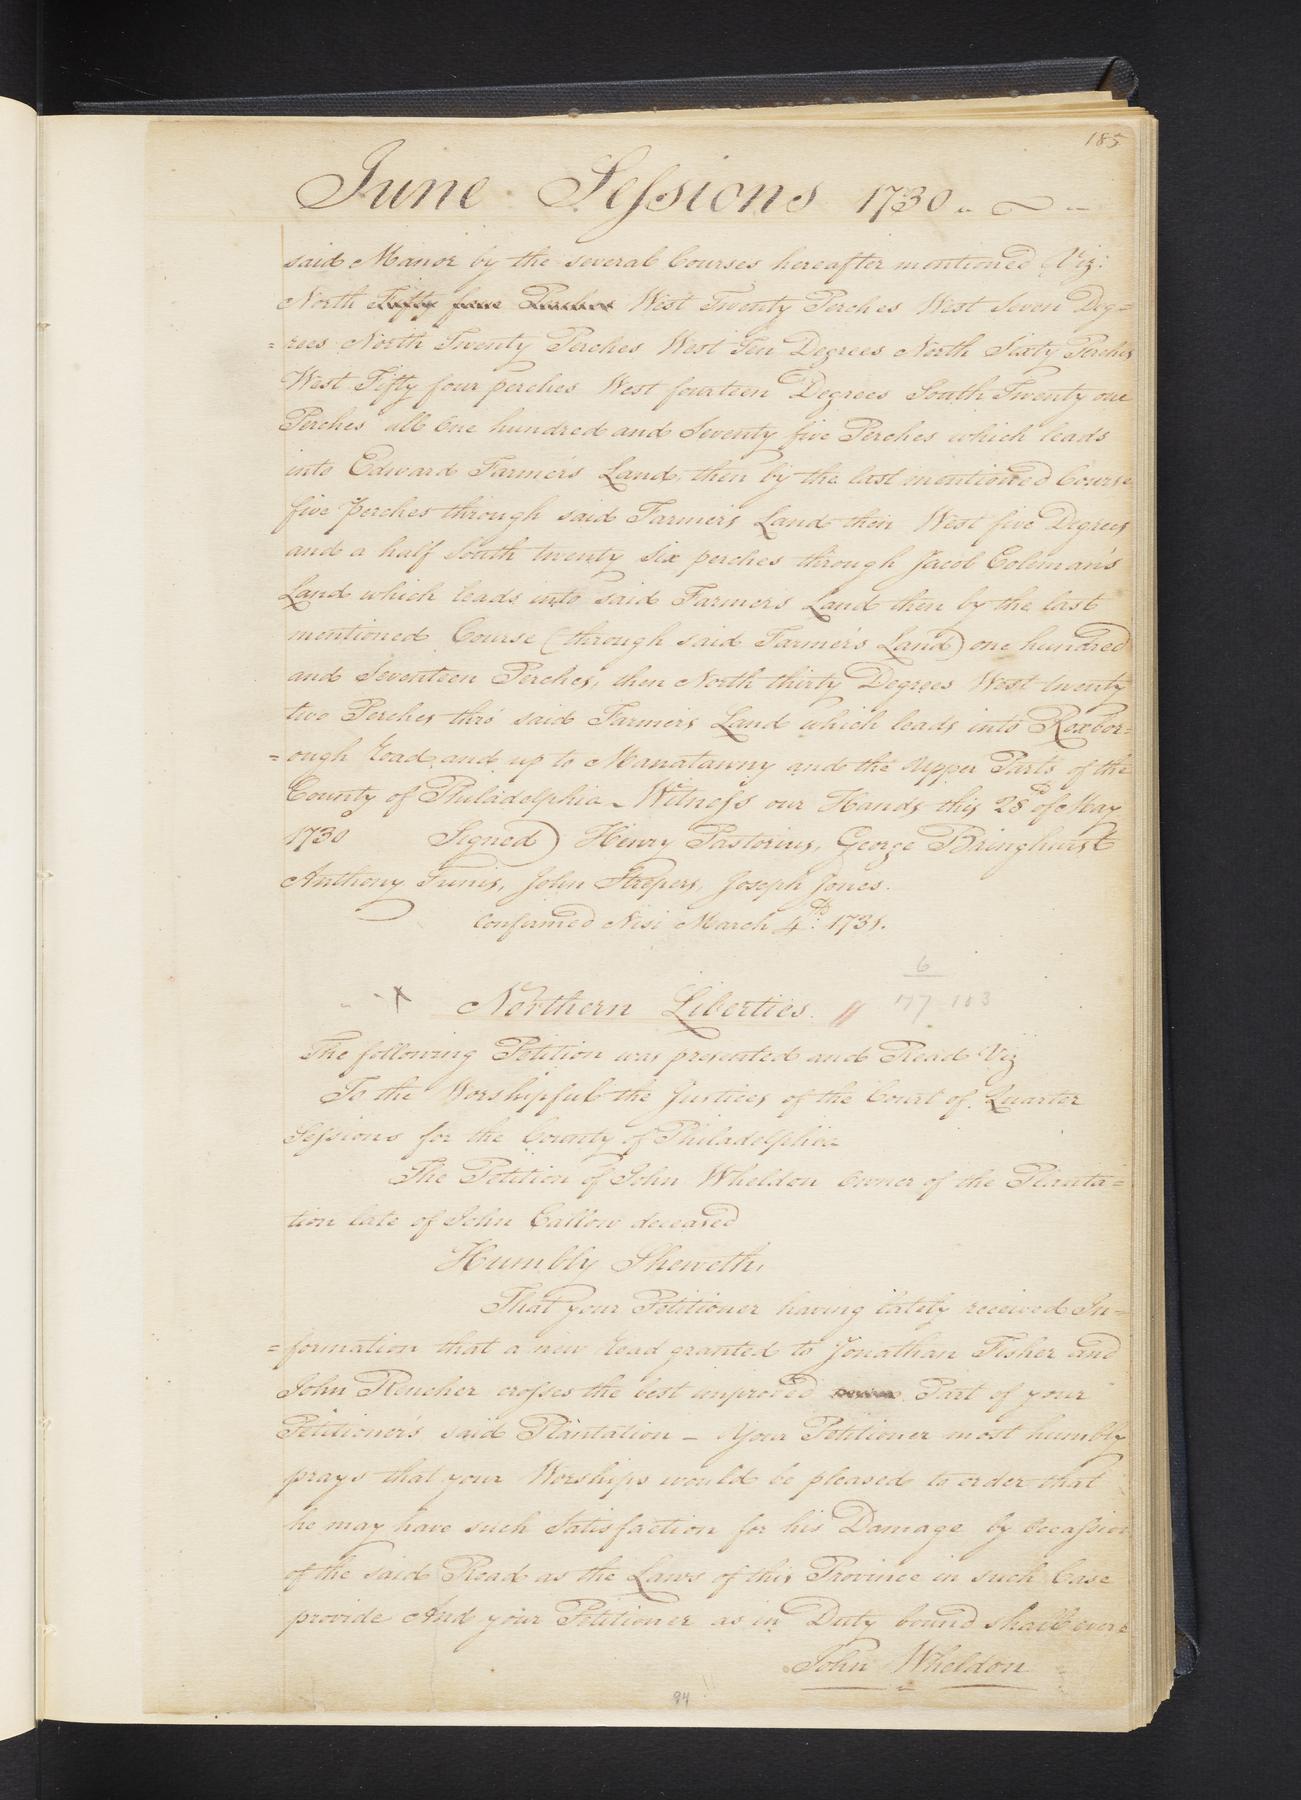 185
June Sessions 1730
said Manor by the several Courses hereafter mentioned Viz:
North Fifty four Perches West Twenty Perches West Seven Deg=
=rees North Twenty Perches West Ten Degrees North Sixty Perches
West Fifty four perches West fourteen Degrees South Twenty one
Perches all One hundred and Seventy five Perches which leads
into Edward Farmer's Land, then by the last mentioned Course
five perches through said Farmer's Land then West five Degrees
and a half South twenty Six perches through Jacob Coleman's
Land which leads into said Farmer's Land then by the last
mentioned Course (through said Farmer's Land) one hundred
and Seventeen Perches, then North thirty Degrees West twenty
two Perches thro' said Farmers Land which leads into Roxbor=
=ough road and up to Manatawny and the Upper Parts of the
County of Philadelphia - Witness our Hands this 28 d of May
1730 Signed) Henry Pastorius, George Bringhurst
Anthony Tunis, John Strepers, Joseph Jones.
Confirmed Nisi March 4th: 1731.
6
X Northern Liberties. // 77 103
The following Petition was presented and Read Viz
To the Worshipful the Justices of the Court of Quarter
Sessions for the County of Philadelphia
The Petition of John Wheldon Owner of the Planta=
tion late of John Callow deceased
Humbly Sheweth,
That your Petitioner having lately received In=
=formation that a new road granted to Jonathan Fisher and
John Rencher crosses the best improved Part of your
Petitioner's said Plantation - Your Petitioner most humbly
prays that your Worships would be pleased to order that
he may have such Satisfaction for his Damage by Occassion
of the said Road as the Laws of this Province in such Case
provide And your Petitioner as in Duty bound shall ever &
John Wheldon
94